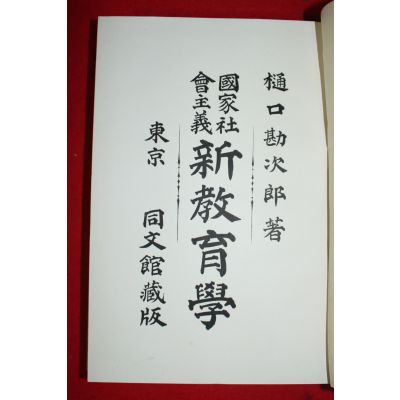 樋口勘次郎著
國家社會主義
新教育學
東京 同文館藏版